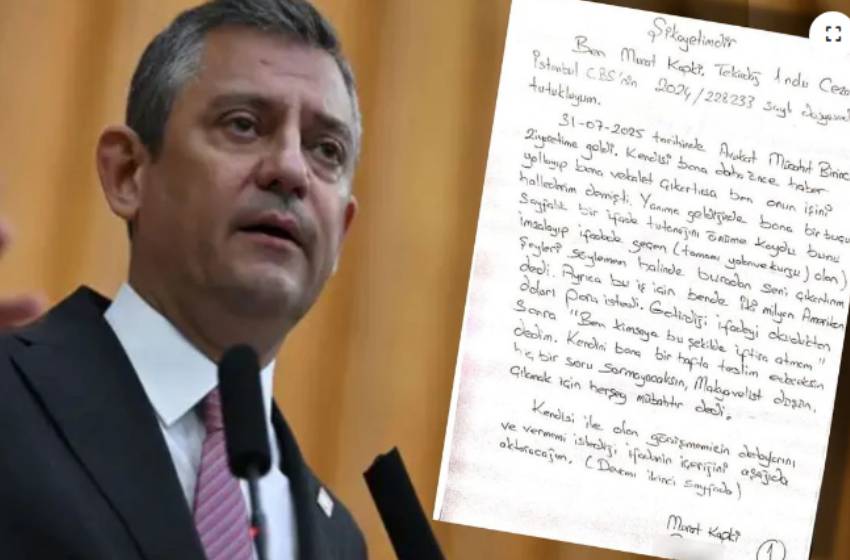 Şikayetimdir
Ben Murat Kapki, Tekirdağ 1 nolu Ceza
İstanbul CBS'nin 2024/228233 sayılı dosyasında
tutukluyum.
31-07-2025 tarihinde Avukat Mücahit Birinci
ziyaretime geldi. Kendisi bana daha önce haber
yollayıp bana vekalet çıkartırsa ben onun işini
hallederim demişti. Yanıma geldiğinde bana bir buçuk
sayfalık bir ifade tutanağını önüme koydu bunu
imzalayıp ifadede geçen (tamamı yalan ve kurgu) olan)
şeyleri söylemem halinde buradan seni çıkartırım
dedi. Ayrıca bu iş için benden iki milyon Amerikan
doları para istedi. Getirdiği ifadeyi okuduktan
sonra "Ben kimseye bu şekilde iftira atmam"
dedim. Kendini bana bir hafta teslim edeceksin
hiç bir soru sormayacaksın, Makyavelist düşün,
çıkmak için herşey mübahtır dedi.
Kendisi ile olan görüşmemizin detaylarını
ve vermemi istediği ifadenin içeriğini aşağıda
aktaracağım. (Devamı ikinci sayfada)
Murat Kapki
1